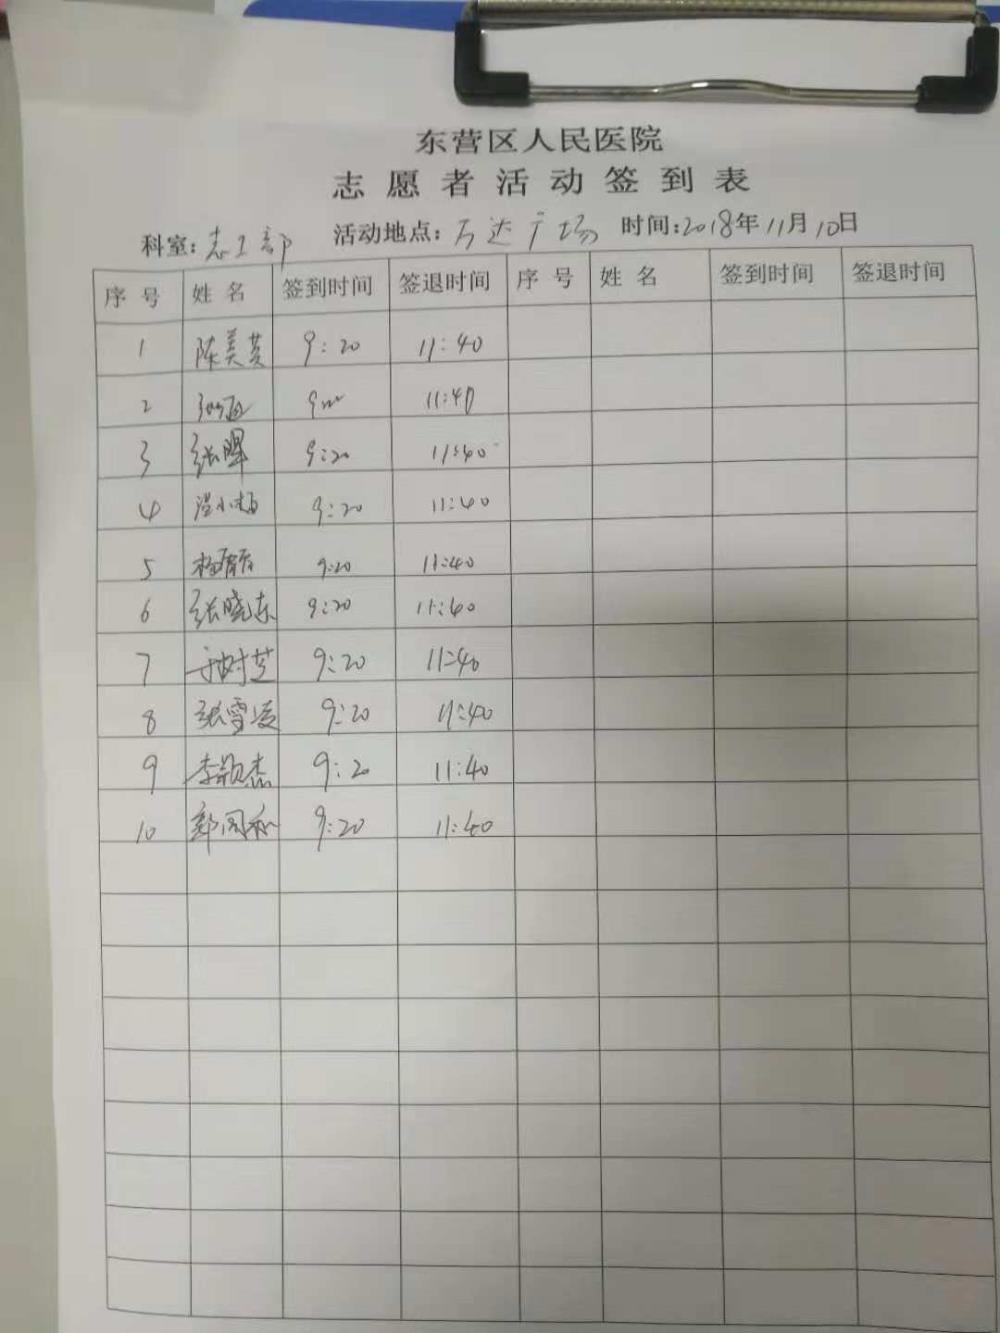 东营区人民医院
志愿者活动签到表
科室:志工部 活动地点:万达广场 时间:2018年11月10日
序号 姓名 签到时间 签退时间 序号 姓名 签到时间 签退时间
1 陈美英 9:20 11:40
2 11:40
3 张晖 9:20 11:40
4 温小梅 9:20 11:40
5 9:20 11:40
6 张晓东 9:20 11:40
7 9:20 11:40
8 张雪凌 9:20 11:40
9 李颖杰 9:20 11:40
10 9:20 11:40